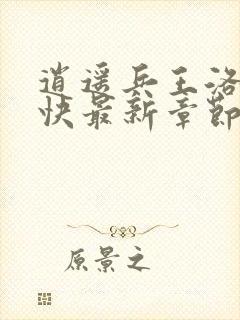 逍遥兵王洛
快最新章节
原景之